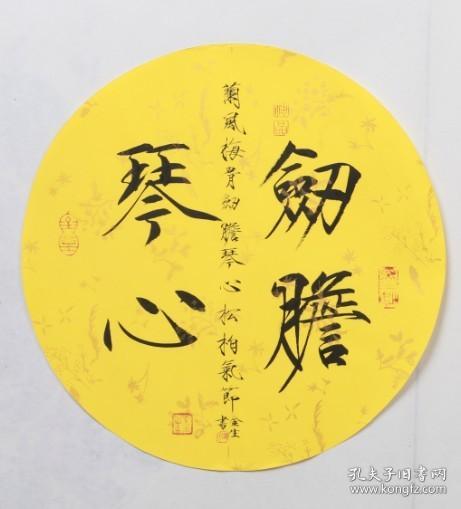 劒膽
琴心
蘭風梅骨劒膽琴心松柏氣節
金生
書
孔夫子旧书网
www.kongfz.com